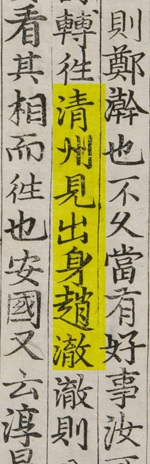 則鄭瀚也不久當有好事汝
轉徃清州見出身趙澈澈則
看其相而徃也安國又云淳